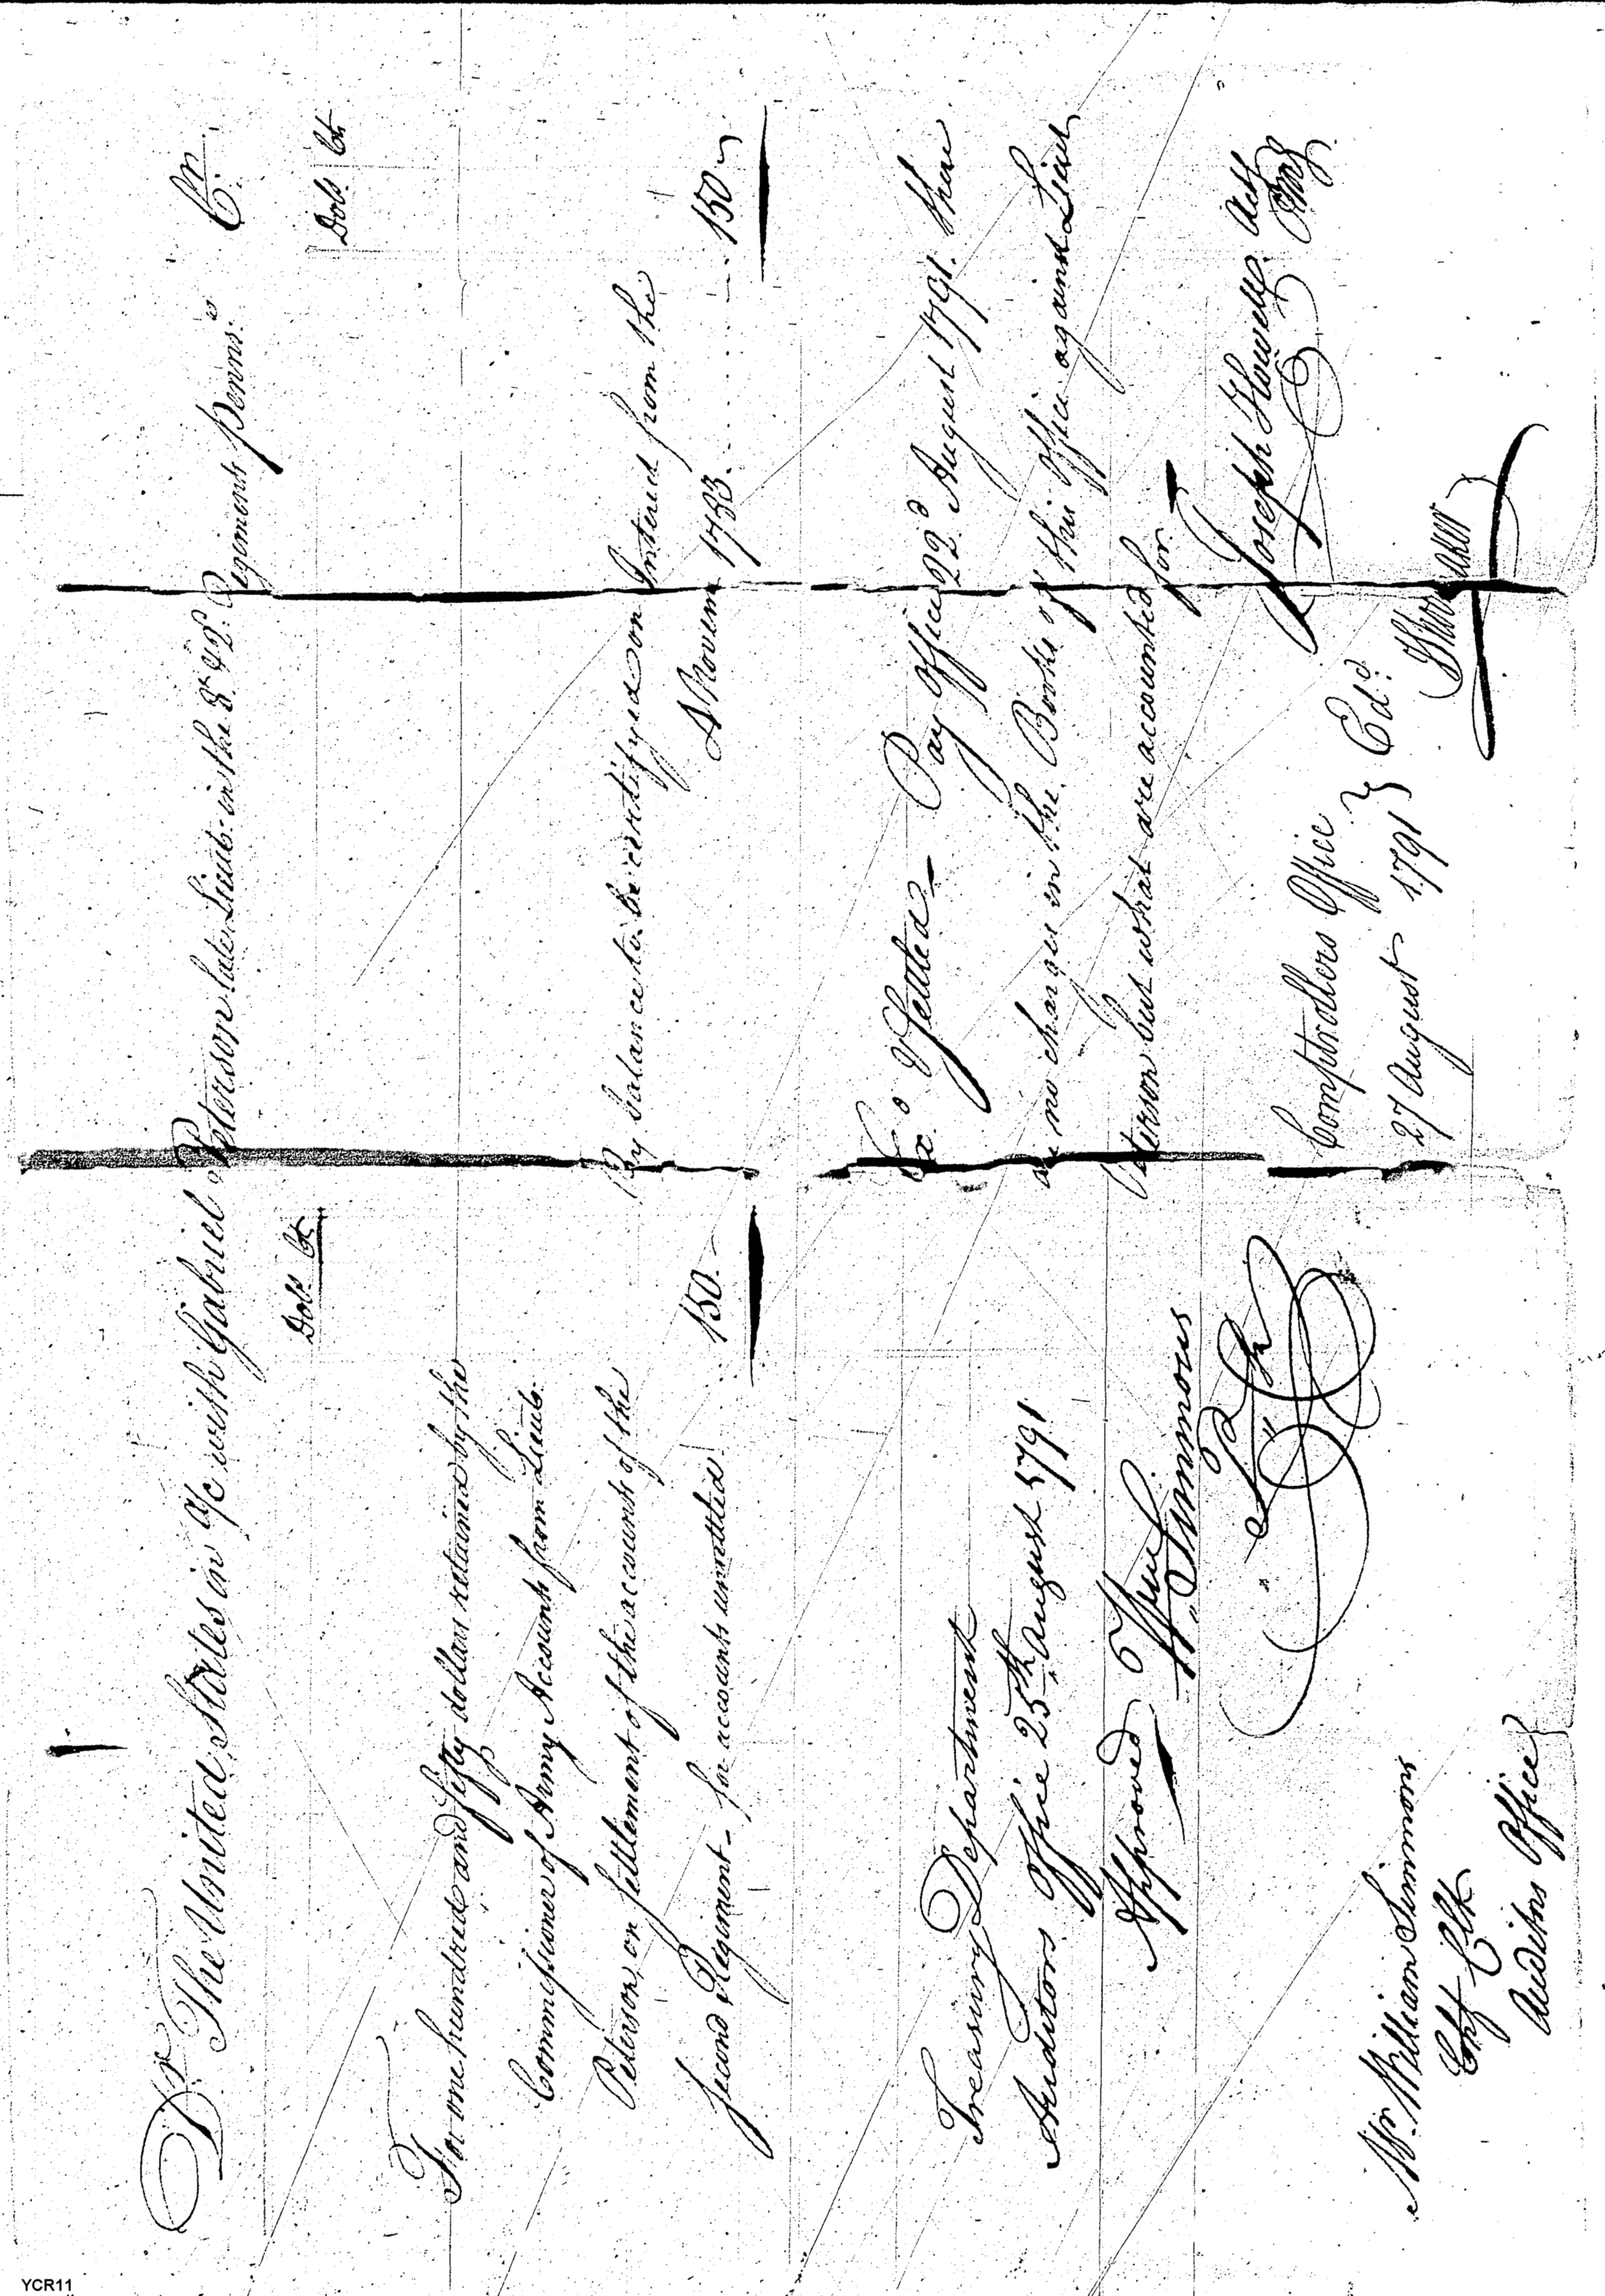 Dr The United States in a/c with Gabriel Peterson late Lieut. in the 8th & 2d Regiments Penns.a Cr.
Dolls Cts
For one hundred and fifty dollars retained by the
Commissioner of Army Accounts from Lieut.
Peterson, on Settlement of the accounts of the
Second Regiment - for accounts unsettled 150.-
Treasury Department
Auditors Office 25th August 1791
Approved Wm Simmons
Mr. William Simmons
Chf Clk
Auditors Office
Dolls Cts
By balance to be certifyed on Interest from the
4 Novem 1783. - 150 -
Exd & Settled - Pay Office 22d August 1791. there
are no charges in the Books of this Office against Lieut
Peterson but what are accounted for.
Joseph Howell Actg
Comptrollers Office } Exd.
27 August 1791 }
YCR11